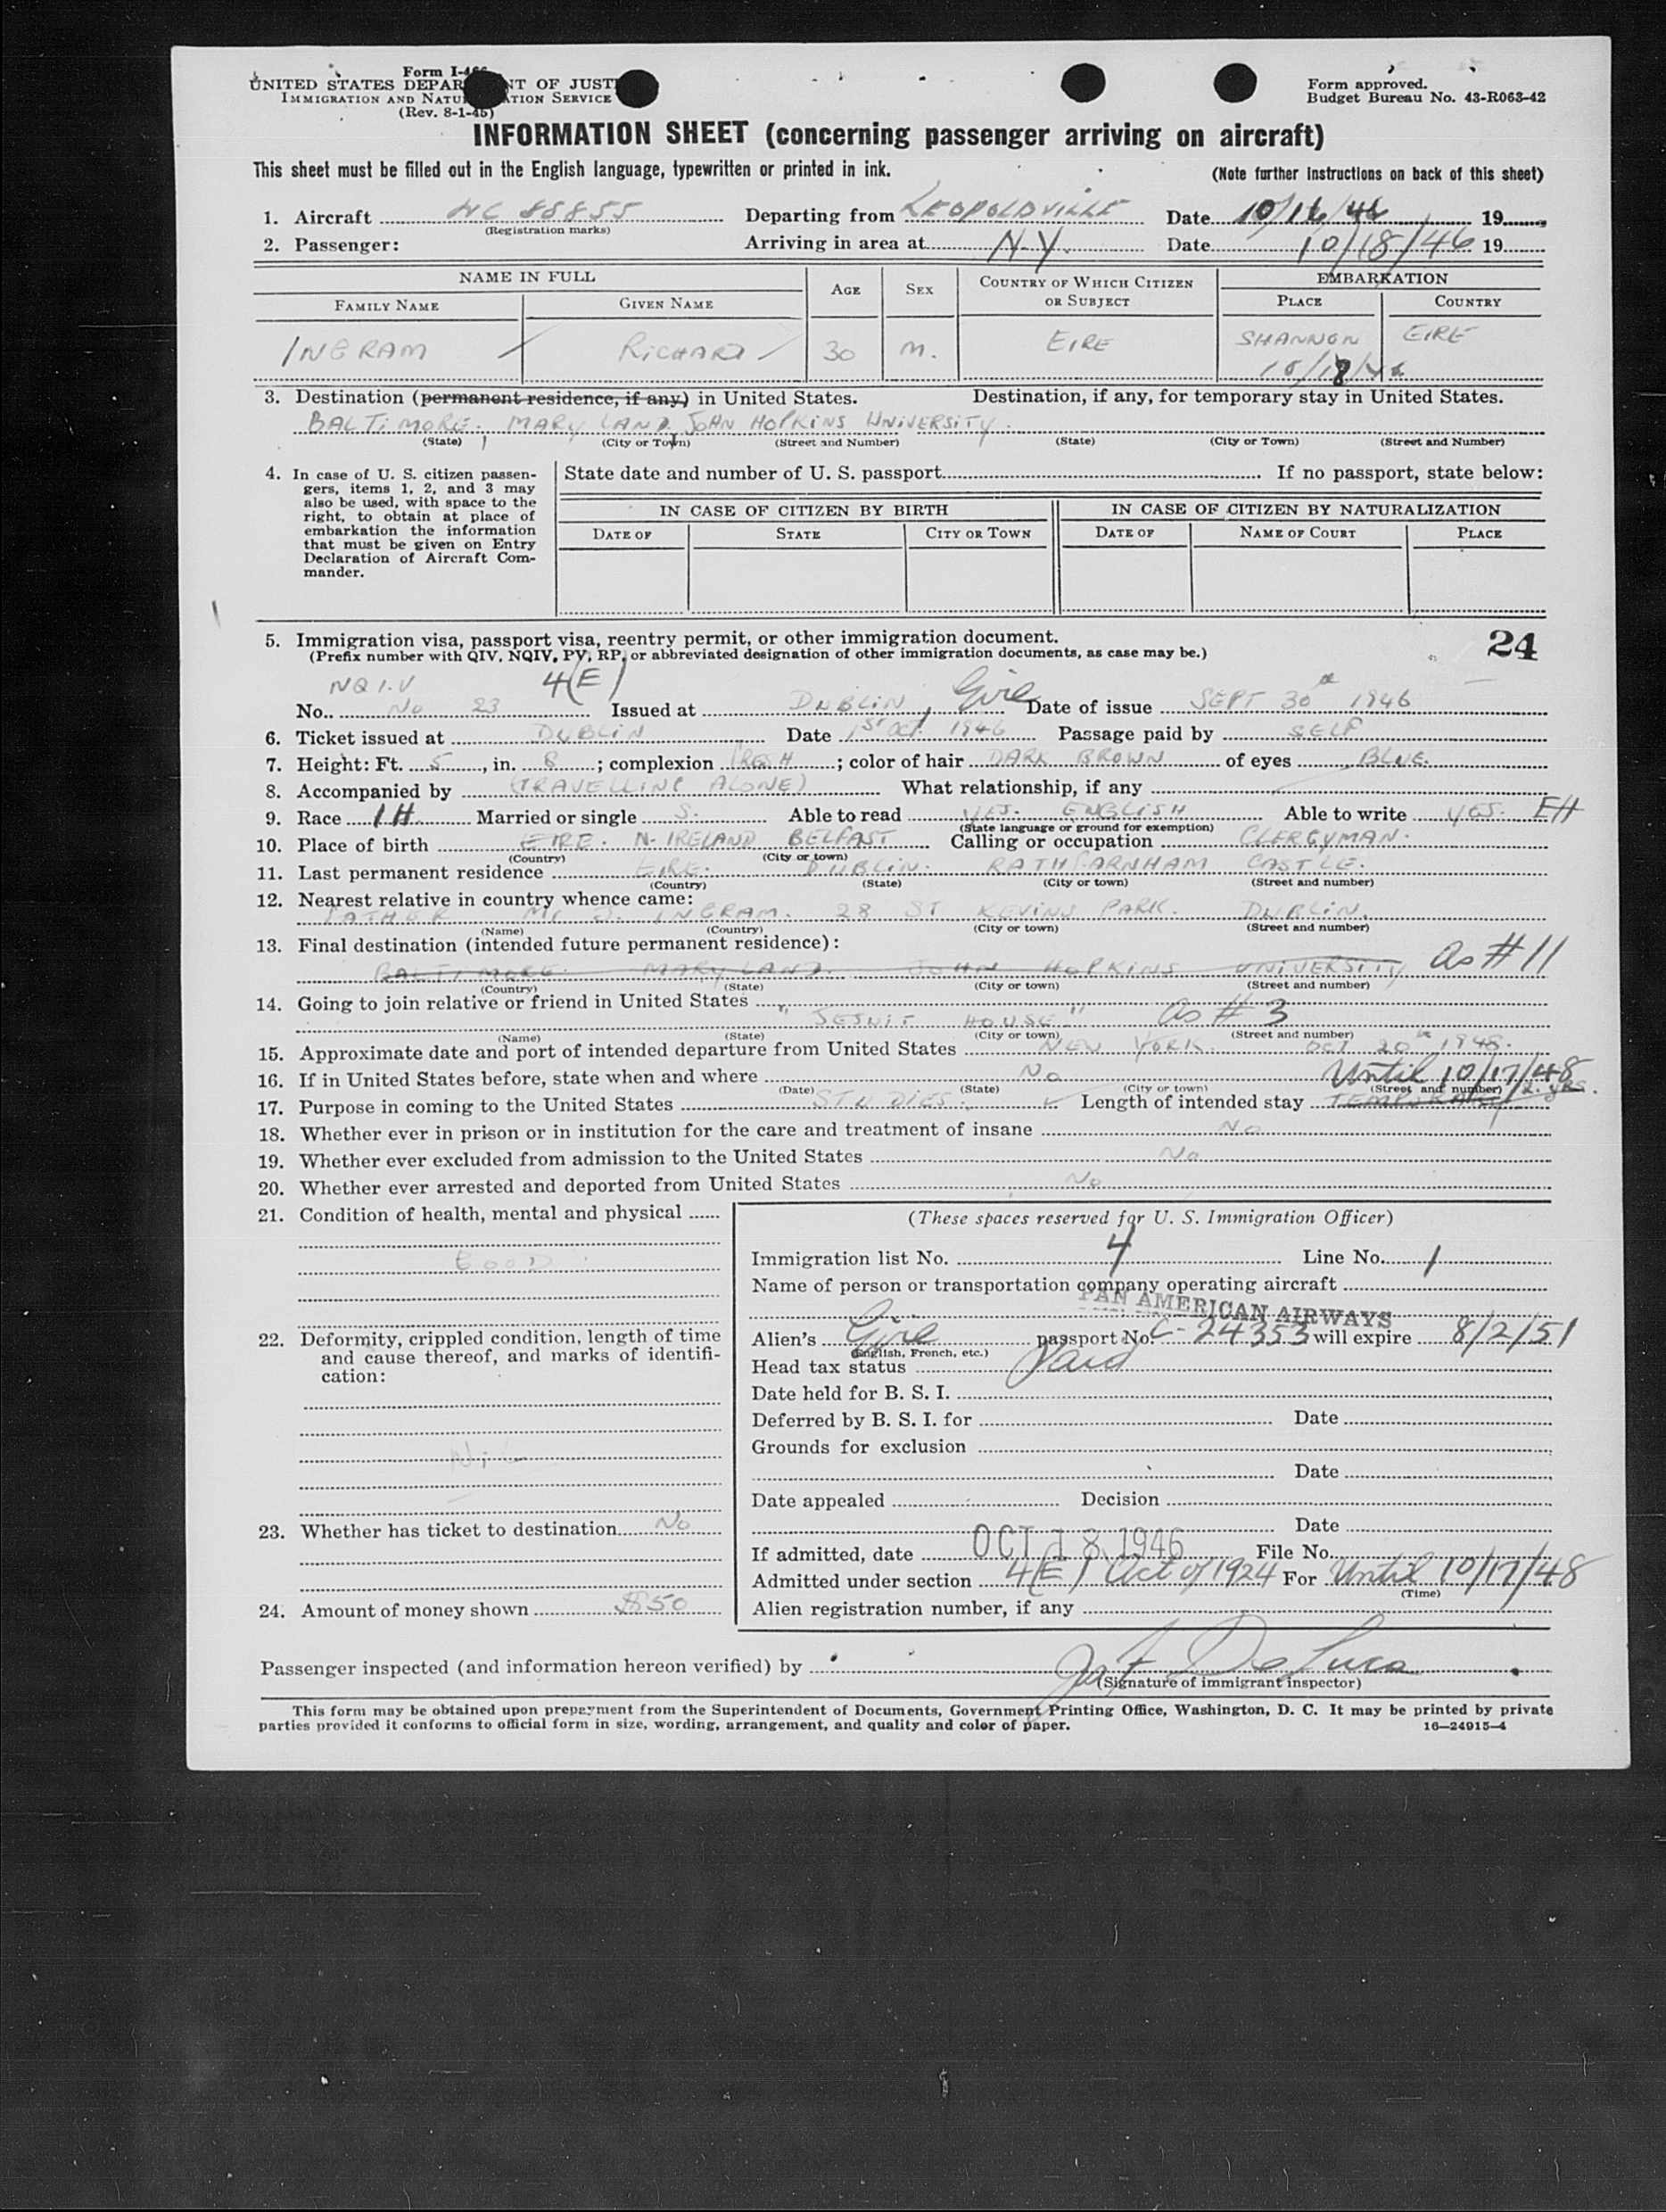 Form I-466
UNITED STATES DEPARTMENT OF JUSTICE
IMMIGRATION AND NATURALIZATION SERVICE
(Rev. 8-1-45)
Form approved.
Budget Bureau No. 43-R063-42
INFORMATION SHEET (concerning passenger arriving on aircraft)
This sheet must be filled out in the English language, typewritten or printed in ink. (Note further instructions on back of this sheet)
1. Aircraft NC 88855 Departing from LEOPOLDVILLE Date 10/16/46 19
(Registration marks)
2. Passenger: Arriving in area at N-Y. Date 10/18/46 19
NAME IN FULL AGE SEX COUNTRY OF WHICH CITIZEN OR SUBJECT EMBARKATION
FAMILY NAME GIVEN NAME PLACE COUNTRY
INGRAM RICHARD 30 M. EIRE SHANNON EIRE
10/18/46
3. Destination (permanent residence, if any) in United States. Destination, if any, for temporary stay in United States.
BALTIMORE. MARYLAND. JOHN HOPKINS UNIVERSITY.
(State) (City or Town) (Street and Number) (State) (City or Town) (Street and Number)
4. In case of U. S. citizen passen-
gers, items 1, 2, and 3 may
also be used, with space to the
right, to obtain at place of
embarkation the information
that must be given on Entry
Declaration of Aircraft Com-
mander.
State date and number of U. S. passport If no passport, state below:
IN CASE OF CITIZEN BY BIRTH IN CASE OF CITIZEN BY NATURALIZATION
DATE OF STATE CITY OR TOWN DATE OF NAME OF COURT PLACE
5. Immigration visa, passport visa, reentry permit, or other immigration document. 24
(Prefix number with QIV, NQIV, PV, RP, or abbreviated designation of other immigration documents, as case may be.)
NQI.V 4(E)
No. No 23 Issued at DUBLIN, Eire Date of issue SEPT 30th 1946
6. Ticket issued at DUBLIN Date 1st OCT. 1946 Passage paid by SELF
7. Height: Ft. 5, in. 8; complexion FRESH; color of hair DARK BROWN of eyes BLUE.
8. Accompanied by (TRAVELLING ALONE) What relationship, if any
9. Race IH Married or single S. Able to read YES. ENGLISH Able to write YES. EH
(State language or ground for exemption)
10. Place of birth EIRE. N. IRELAND BELFAST Calling or occupation CLERGYMAN.
(Country) (City or town)
11. Last permanent residence EIRE. DUBLIN. RATHFARNHAM CASTLE.
(Country) (State) (City or town) (Street and number)
12. Nearest relative in country whence came:
FATHER Mr J. INGRAM. 28 ST KEVINS PARK. DUBLIN.
(Name) (Country) (City or town) (Street and number)
13. Final destination (intended future permanent residence):
BALTIMORE. MARYLAND. JOHN HOPKINS UNIVERSITY as #11
(Country) (State) (City or town) (Street and number)
14. Going to join relative or friend in United States
"JESUIT HOUSE" as #3
(Name) (State) (City or town) (Street and number)
15. Approximate date and port of intended departure from United States NEW YORK. OCT 20th 1948.
16. If in United States before, state when and where No
(Date) (State) (City or town) (Street and number)
Until 10/17/48
17. Purpose in coming to the United States STUDIES. Length of intended stay TEMPORARY 2. yrs.
18. Whether ever in prison or in institution for the care and treatment of insane No
19. Whether ever excluded from admission to the United States No
20. Whether ever arrested and deported from United States No
21. Condition of health, mental and physical
GOOD
22. Deformity, crippled condition, length of time
and cause thereof, and marks of identifi-
cation:
NiL
23. Whether has ticket to destination No
24. Amount of money shown $50
(These spaces reserved for U. S. Immigration Officer)
Immigration list No. 4 Line No. 1
Name of person or transportation company operating aircraft
PAN AMERICAN AIRWAYS
Alien's Eire passport No. C-24353 will expire 8/2/51
(English, French, etc.)
Head tax status Paid
Date held for B. S. I.
Deferred by B. S. I. for Date
Grounds for exclusion
Date
Date appealed Decision
Date
If admitted, date OCT 18 1946 File No.
Admitted under section 4(E) Act of 1924 For Until 10/17/48
(Time)
Alien registration number, if any
Passenger inspected (and information hereon verified) by De Luca
(Signature of immigrant inspector)
This form may be obtained upon prepayment from the Superintendent of Documents, Government Printing Office, Washington, D. C. It may be printed by private
parties provided it conforms to official form in size, wording, arrangement, and quality and color of paper. 16—24915-4